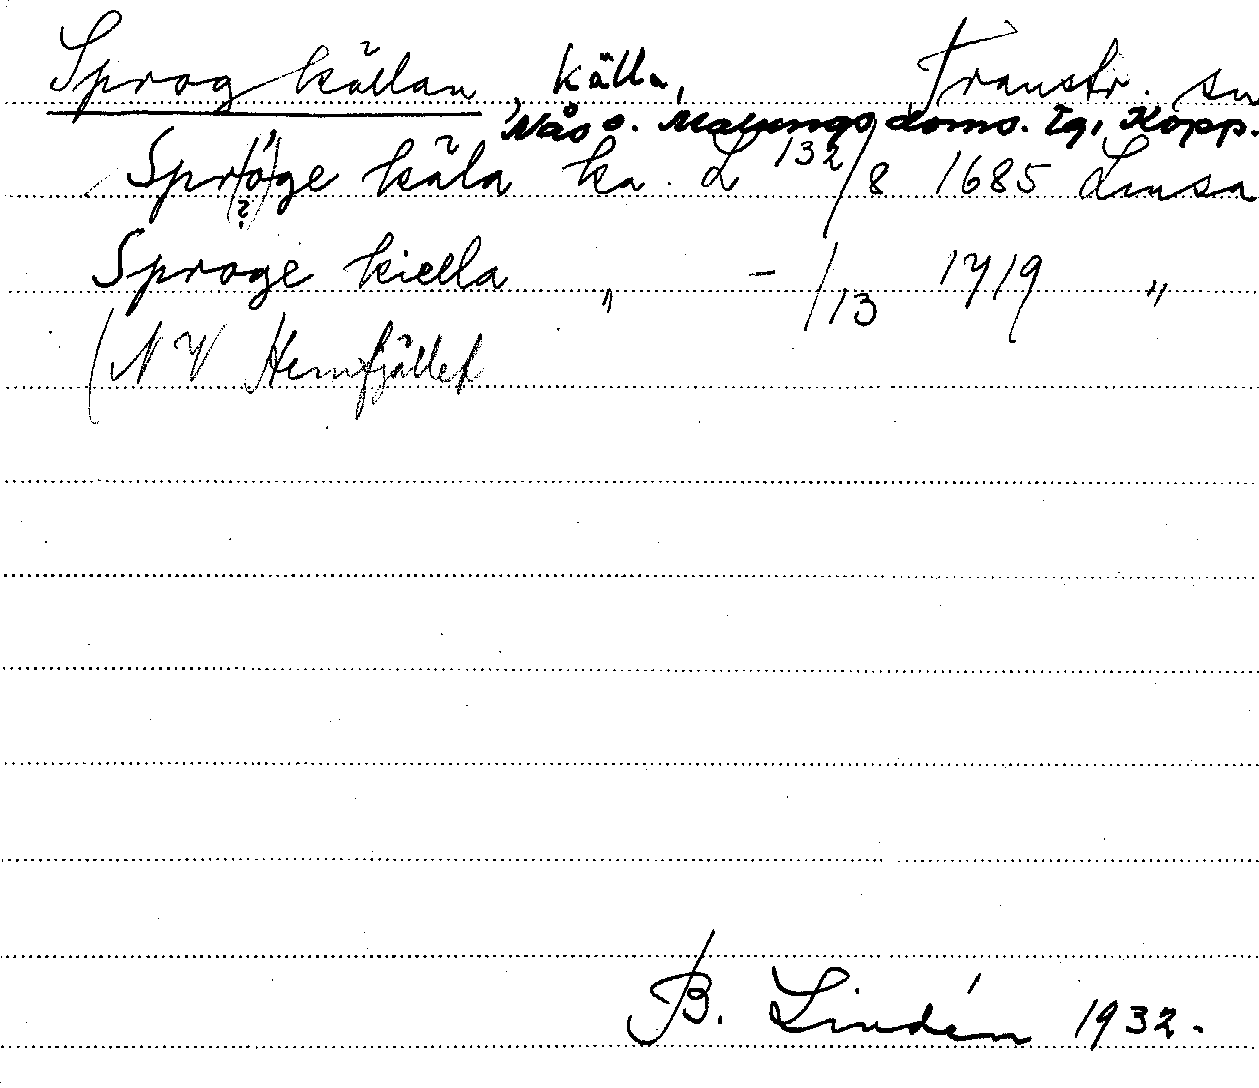 Sprogkällan, källa, Transtr. sn
Nås o. Malungs doms. tg, Kopp.
Spr(ö)ge käla ka. L 132/8 1685 Limsa
(?)
Sproge kiella " - /13 1719 "
(N V Hemfjället
B. Lindén 1932.